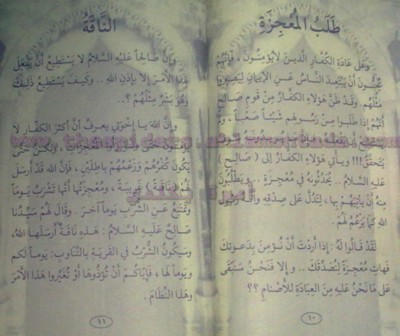 طَلَبُ الْمُعْجِزَةِ
وَعَلَى عَادَةِ الْكُفَّارِ الَّذِينَ لَا يُؤْمِنُونَ، فَإِنَّهُمْ
يُحِبُّونَ أَنْ يَبْتَعِدَ النَّاسُ عَنِ الْإِيمَانِ لِيَكُونُوا
مِثْلَهُمْ. وَقَدْ ظَنَّ هَؤُلَاءِ الْكُفَّارُ مِنْ قَوْمِ صَالِحٍ
أَنَّهُمْ إِذَا طَلَبُوا مِنْ رَسُولِهِمْ شَيْئًا صَعْبًا، وَلَمْ
يَتَحَقَّقَ!!! وَيَأْتِي هَؤُلَاءِ الْكُفَّارُ إِلَى (صَالِحٍ)
عَلَيْهِ السَّلَامُ.. يُحَدِّثُونَهُ فِي مُعْجِزَةٍ.. وَيَطْلُبُونَ
مِنْهُ أَنْ يَأْتِيَهُمْ بِهَا، لِتَدُلَّ عَلَى صِدْقِهِ وَأَنَّهُ رَسُولُ
اللَّهِ كَمَا يَزْعُمُ لَهُمْ.
لَقَدْ قَالُوا لَهُ: إِذَا أَرَدْتَ أَنْ نُؤْمِنَ بِدَعْوَتِكَ
فَهَاتِ مُعْجِزَةً لِنُصَدِّقَكَ.. وَإِلَّا فَنَحْنُ سَنَبْقَى
عَلَى مَا نَحْنُ عَلَيْهِ مِنَ الْعِبَادَةِ لِلْأَصْنَامِ؟؟
١٠
النَّاقَةُ
وَإِنَّ صَالِحًا عَلَيْهِ السَّلَامُ لَا يَسْتَطِيعُ أَنْ يَفْعَلَ
هَذَا الْأَمْرَ إِلَّا بِإِذْنِ اللَّهِ.. وَكَيْفَ يَسْتَطِيعُ ذَلِكَ
وَهُوَ بَشَرٌ مِثْلُهُمْ؟..
وَإِنَّ اللَّهَ يَا إِخْوَتِي يَعْرِفُ أَنَّ أَكْثَرَ الْكُفَّارِ لَا
يَكُونَ كُفْرُهُمْ وَزَعْمُهُمْ بَاطِلَيْنِ، فَإِنَّ اللَّهَ قَدْ أَرْسَلَ
لَهُمْ (نَاقَةً) غَرِيبَةً، وَمُعْجِزَتُهَا أَنَّهَا تَشْرَبُ يَوْمًا
وَتَمْتَنِعُ عَنِ الشُّرْبِ يَوْمًا آخَرَ. وَقَالَ لَهُمْ سَيِّدُنَا
صَالِحٌ عَلَيْهِ السَّلَامُ: هَذِهِ نَاقَةٌ أَرْسَلَهَا اللَّهُ،
وَسَيَكُونُ الشُّرْبُ فِي الْقَرْيَةِ بِالتَّنَاوُبِ: يَوْمًا لَكُمْ
وَيَوْمًا لَهَا، فَإِيَّاكُمْ أَنْ تُؤْذُوهَا أَوْ تُغَيِّرُوا هَذَا الْأَمْرَ
وَهَذَا النِّظَامَ.
١١